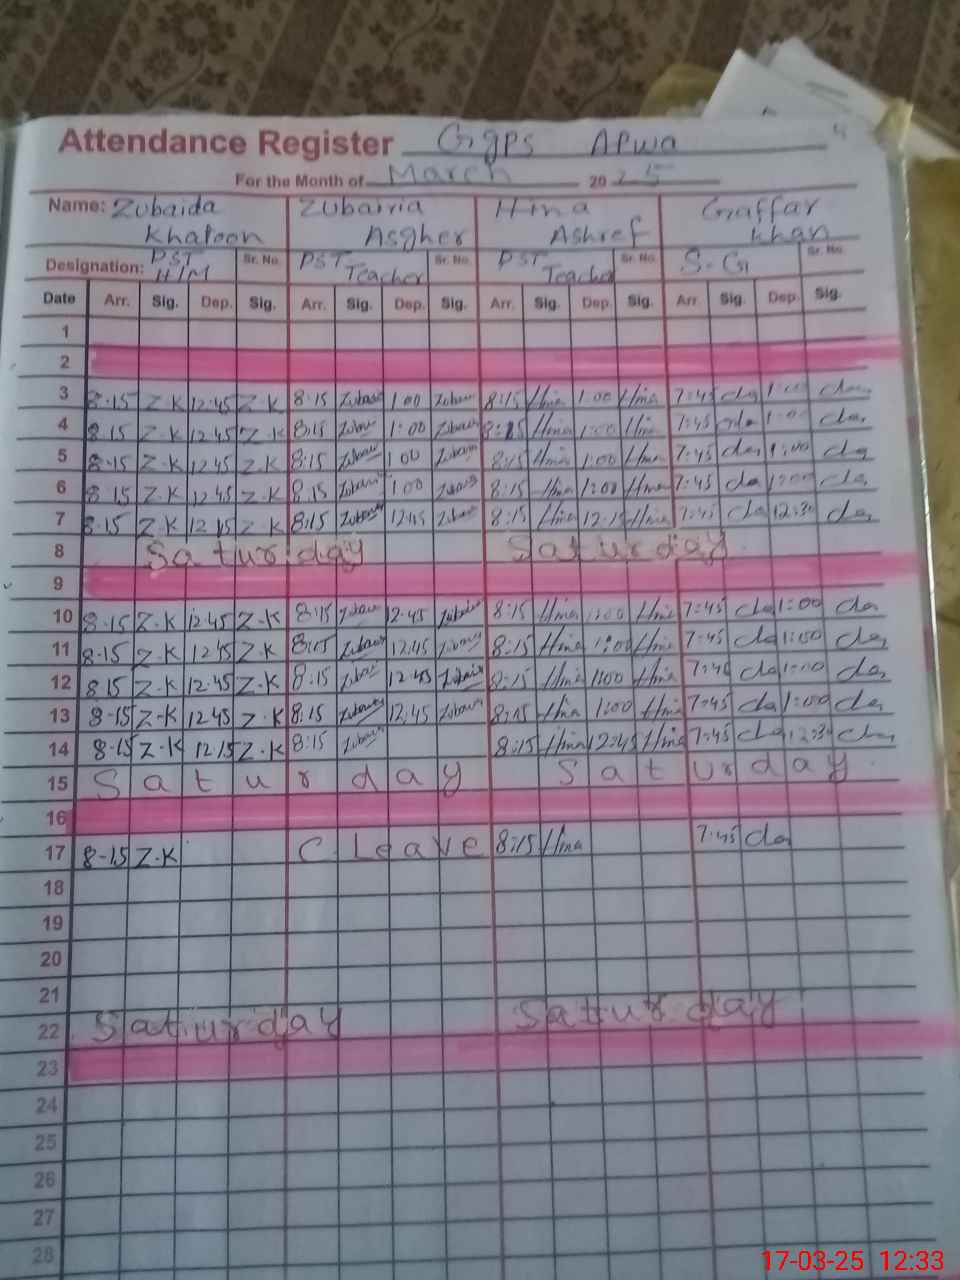 Attendance Register GGPS APWA
For the Month of March 20 25
Name: Zubaida Khatoon Zubairia Asgher Hina Ashref Gaffar Khan
Designation: PST H/M Sr. No. PST Teacher Sr. No. PST Teacher Sr. No. S-G Sr. No.
Date Arr. Sig. Dep. Sig. Arr. Sig. Dep. Sig. Arr. Sig. Dep. Sig. Arr. Sig. Dep. Sig.
1
2
3 8-15 Z.K 12.45 Z.K 8:15 1:00 8:15 Hina 1:00 Hina 7:45 1:00
4 8.15 Z.K 12.45 Z.K 8:15 1:00 8:15 Hina 1:00 Hina 7:45 1:00
5 8-15 Z.K 12.45 Z.K 8:15 1:00 8:15 Hina 1:00 Hina 7:45 1:00
6 8.15 Z.K 12.45 Z.K 8:15 1:00 8:15 Hina 1:00 Hina 7:45 1:00
7 8-15 Z.K 12.15 Z.K 8:15 12:45 8:15 Hina 12:15 Hina 7:45 12:30
8 Saturday Saturday
9
10 8-15 Z.K 12.45 Z.K 8:15 12:45 8:15 Hina 1:00 Hina 7:45 1:00
11 8-15 Z.K 12.45 Z.K 8:15 12:45 8:15 Hina 1:00 Hina 7:45 1:00
12 8.15 Z-K 12.45 Z-K 8:15 12:45 8:15 Hina 1:00 Hina 7:45 1:00
13 8-15 Z-K 12.45 Z.K 8:15 12:45 8:15 Hina 1:00 Hina 7:45 1:00
14 8-15 Z.K 12.15 Z-K 8:15 8:15 Hina 12:45 Hina 7:45 12:30
15 Saturday Saturday
16
17 8-15 Z.K C. Leave 8:15 Hina 7:45
18
19
20
21
22 Saturday Saturday
23
24
25
26
27
28
17-03-25 12:33